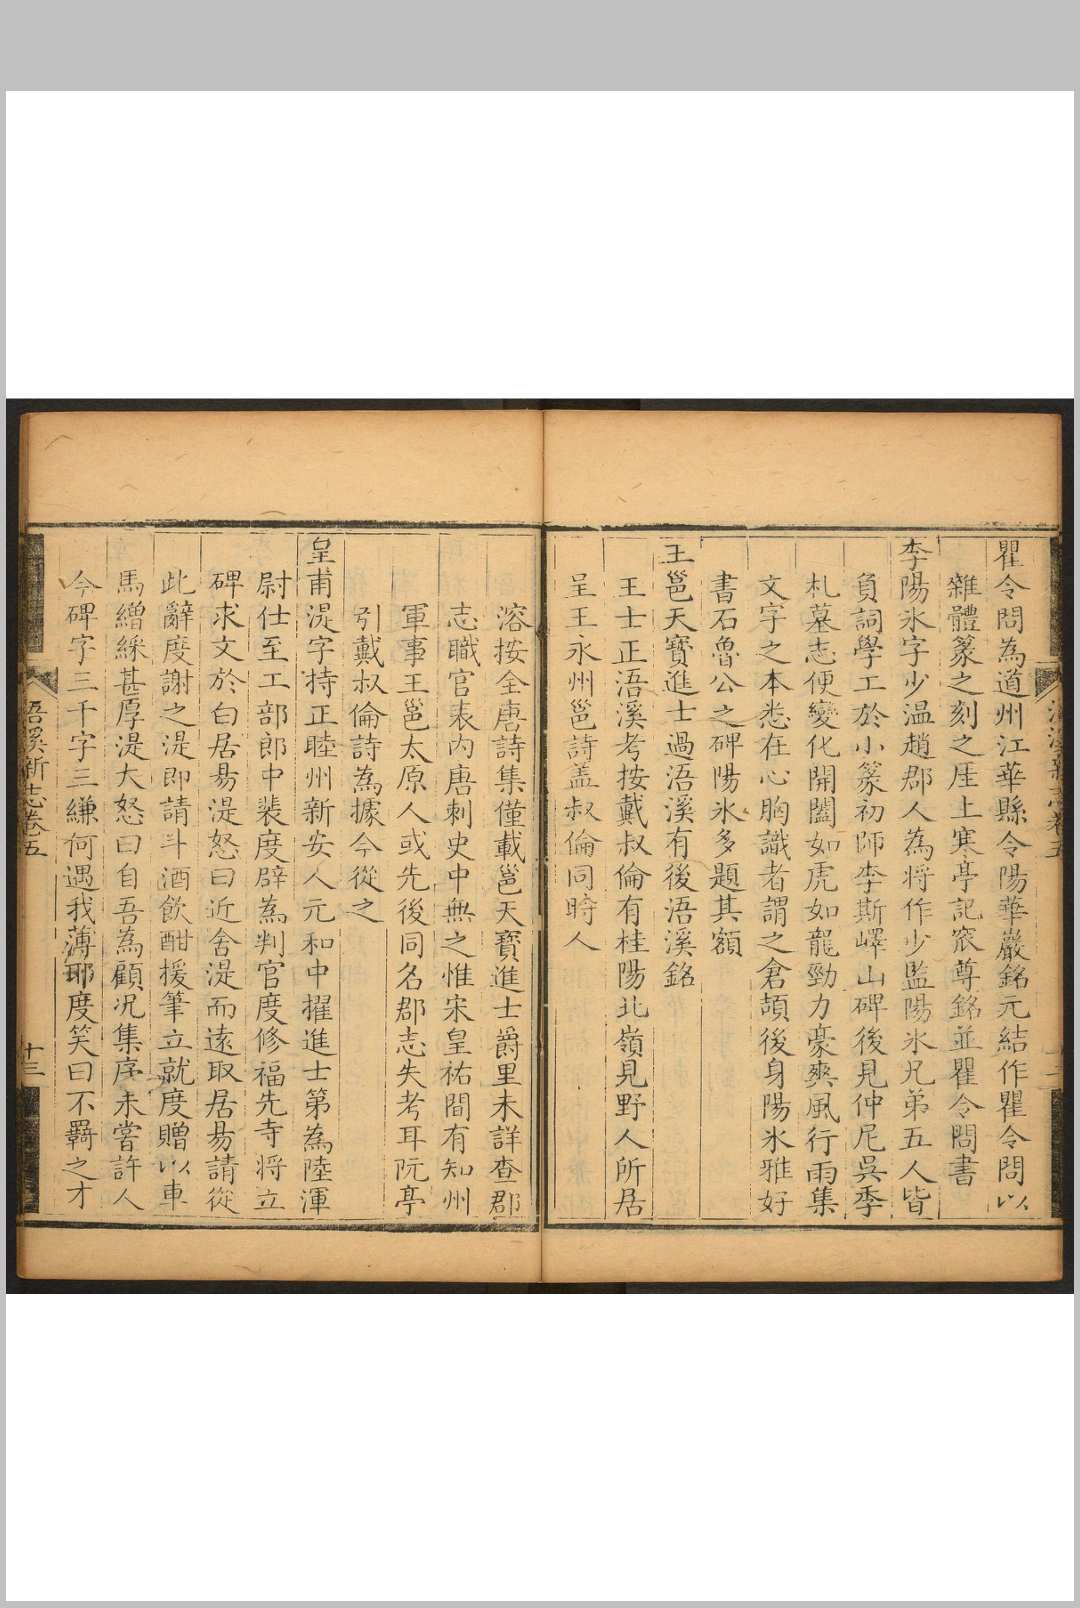 瞿令問為道州江華縣令陽華巖銘元結作瞿令問以
雜體篆之刻之厓上寒亭記窊尊銘並瞿令問書
李陽氷字少温趙郡人為將作少監陽氷兄弟五人皆
負詞學工於小篆初師李斯嶧山碑後見仲尼吳季
札墓志便變化開闔如虎如龍勁力豪爽風行雨集
文字之本悉在心胸識者謂之倉頡後身陽氷雅好
書石魯公之碑陽氷多題其額
王邕天寶進士過浯溪有後浯溪銘
王士正浯溪考按戴叔倫有桂陽北嶺見野人所居
呈王永州邕詩盖叔倫同時人
溶按全唐詩集僅載邕天寶進士爵里未詳查郡
志職官表内唐刺史中無之惟宋皇祐間有知州
軍事王邕太原人或先後同名郡志失考耳阮亭
引戴叔倫詩為據今從之
皇甫湜字持正睦州新安人元和中擢進士第為陸渾
尉仕至工部郎中裴度辟為判官度修福先寺將立
碑求文於白居昜湜怒曰近舍湜而遠取居昜請從
此辭度謝之湜即請斗酒飲酣援筆立就度贈以車
馬繒綵甚厚湜大怒曰自吾為顧况集序未嘗許人
今碑字三千字三縑何遇我薄耶度笑曰不羈之才
浯溪新志卷五
十三